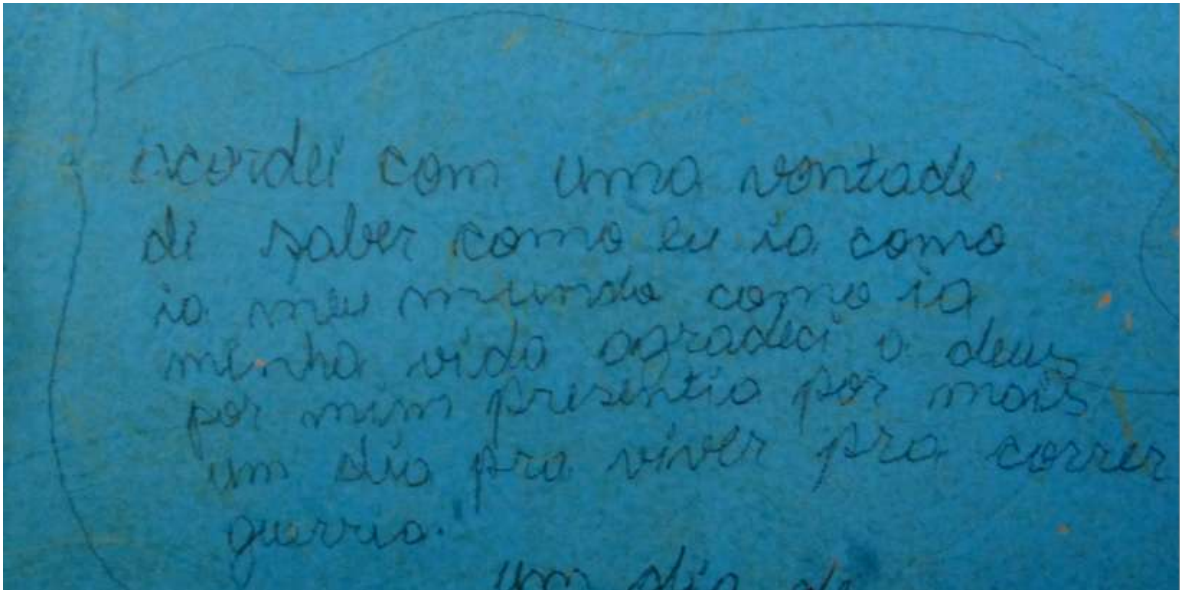 acordei com uma vontade
de saber como eu ia como
ia meu mundo como ia
minha vida agradeci a deus
por mim presentia por mais
um dia pra viver pra correr
guerria.
um dia de